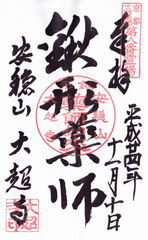 奉拝
平成廿四年
十一月十日
鍬形薬師
安穏山 大超寺
京都
第八番霊場
安穏山